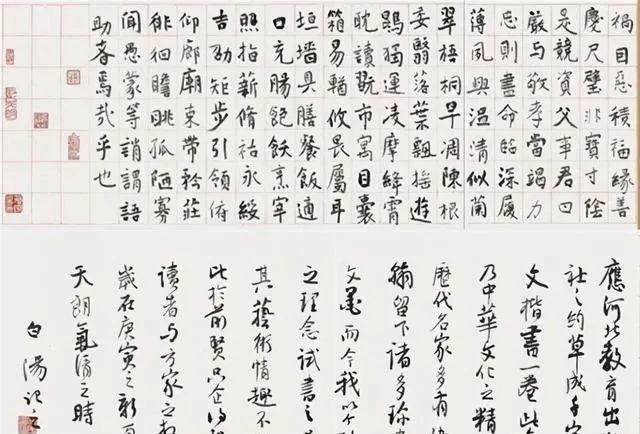 禍因惡積福緣善
慶尺璧非寶寸陰
是競資父事君曰
嚴与敬孝當竭力
忠則盡命臨深履
薄夙興溫清似蘭
翠梧桐早凋陳根
委翳落葉飄搖遊
鵾獨運凌摩絳霄
耽讀翫市寓目囊
箱易輶攸畏屬耳
垣墻具膳餐飯適
口充腸飽飫烹宰
照指薪脩祜永綏
吉劭矩步引領俯
仰廊廟束帶矜莊
徘徊瞻眺孤陋寡
聞愚蒙等誚謂語
助者焉哉乎也
應河北教育出
社之約草成千字
文楷書一卷此
乃中華文化之精
歷代名家多有
留下諸多珍
文墨而今我以
之理念試書之
其藝術情趣不
此於前賢只企
讀者与方家之
歲在庚寅之新
天朗氣清之時
白湯記之